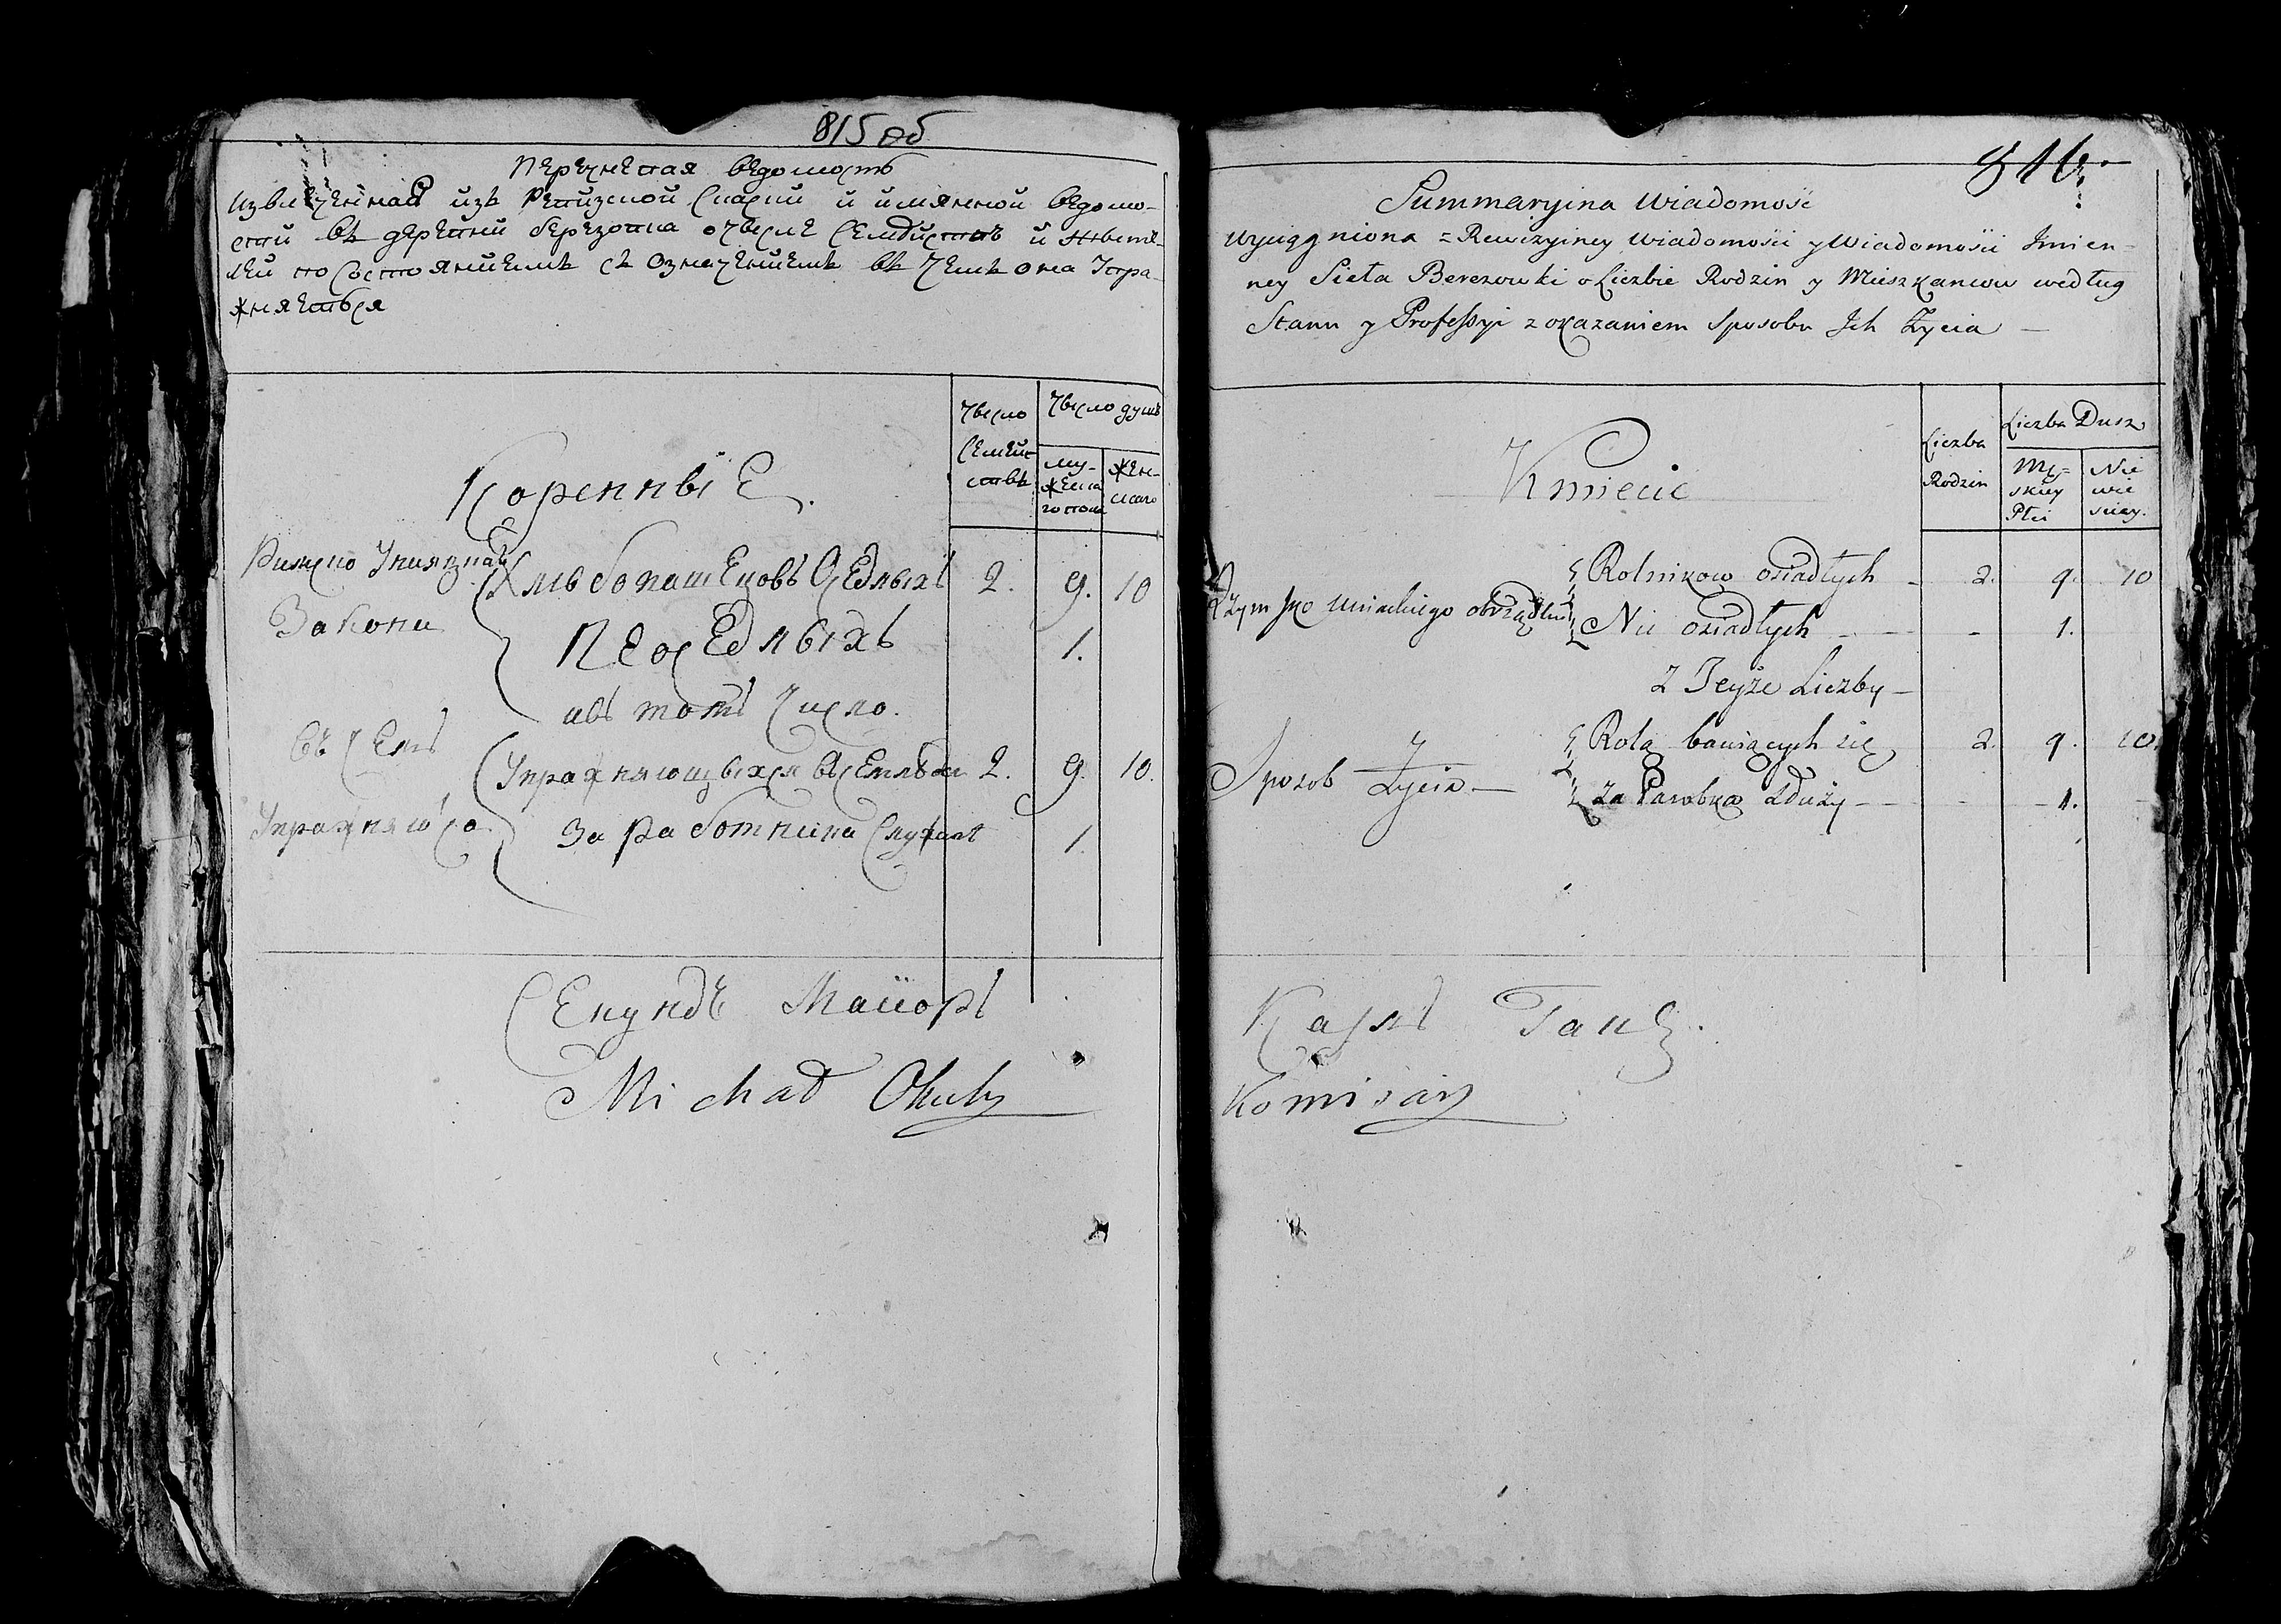 815 об
Перечневая ведомость
Извлеченная изъ Ревизской Скаски и имянной ведомо-
сти въ деревни березовка очисле Семействъ и жите-
лей по Состояниемъ съ Означениемъ въ чемъ она Упра-
жняеться
Число Семействъ
Число душъ
мужеска го пола
женскаго
Коренные
Римско Униязкаго Закона
Хлебопашецовъ Оседлыхъ 2. 9. 10
Неоседлыхъ 1.
ивъ томъ Число.
въ семъ Упражняюсо
Упражняющыхся въ Земледел 2. 9. 10.
За работника Служит 1.
Секундъ Маиоръ
Michał
816.
Summaryina Wiadomość
wyciągniona z Rewizyiney Wiadomości y Wiadomości Imien-
ney Sieła Berezowki o Liczbie Rodzin y Mieszkancow według
Stanu y Professyi z okazaniem Sposobu Ich Życia —
Liczba Rodzin
Liczba Dusz
Mę= skiey Płci
Nie wie sciey.
Kmiecie
Rzymsko Uniackiego obrządku
Rolnikow osiadłych - 2. 9. 10
Nie osiadłych - - - 1.
Z Teyże Liczby —
Sposob Życia —
Rolą bawiących się 2. 9. 10.
Za Parobka służy - - - 1. -
Карлъ
Komisarz